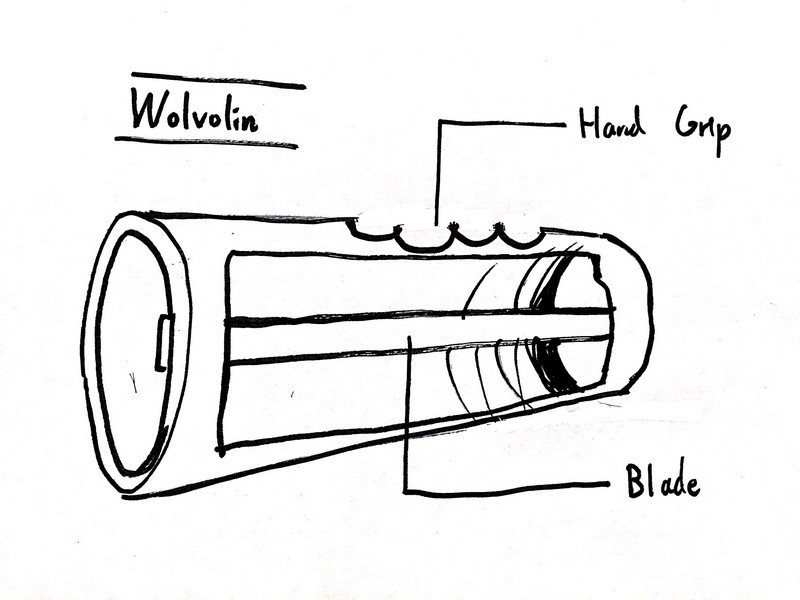 Wolvolin
Hand Grip
Blade